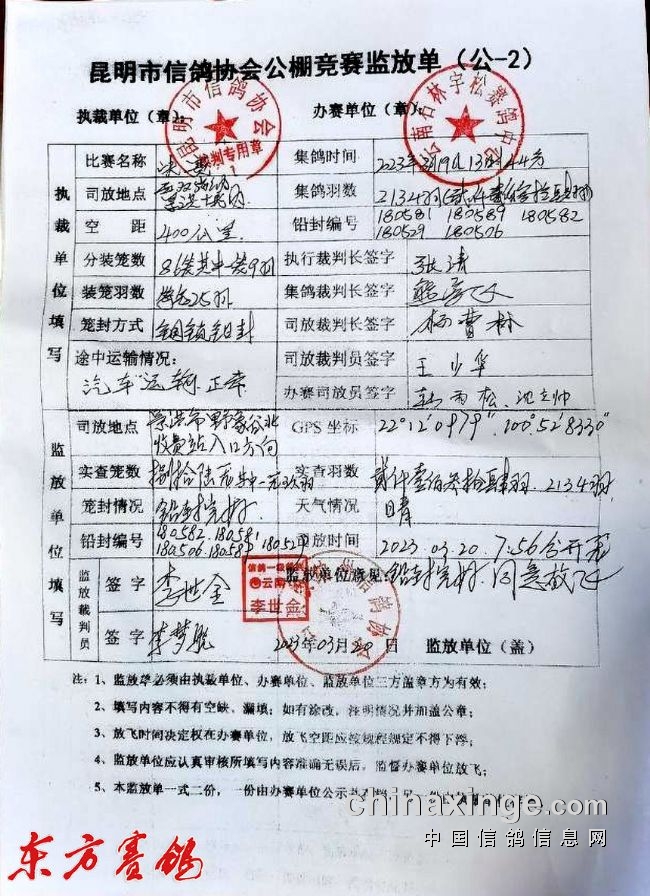 昆明市信鸽协会公棚竞赛监放单（公-2）
执裁单位（章）： 办赛单位（章）：
昆明市信鸽协会
裁判专用章
云南石林宇松赛鸽中心
执裁单位填写
比赛名称 决赛 集鸽时间 2023年3月19日13时44分
司放地点 集鸽羽数 2134羽
空 距 400公里 铅封编号 180581 180589 180582
180529 180506
分装笼数 86笼其中一笼9羽 执行裁判长签字 张清
装笼羽数 每笼25羽 集鸽裁判长签字
笼封方式 司放裁判长签字 杨曹林
途中运输情况： 司放裁判员签字 王少华
汽车运输 正常 办赛司放员签字
监放单位填写
司放地点 景洪市野象谷北 GPS 坐标 22°12′0979″ 100°52′8330″
收费站入口方向
实查笼数 捌拾陆 实查羽数 贰仟壹佰叁拾肆羽. 2134羽
笼封情况 铅封完好 天气情况 晴
铅封编号 180582. 180581 司放时间 2023.03.20. 7:56分开笼
180506. 180589 180529
监放裁判员
签 字 李世金 监放单位意见: 铅封完好. 同意放飞
信鸽一级裁判
云南
李世金
签 字 李梦 2023年03月20日 监放单位（盖）
注：1、监放单必须由执裁单位、办赛单位、监放单位三方盖章方为有效；
2、填写内容不得有空缺、漏填；如有涂改，注明情况并加盖公章；
3、放飞时间决定权在办赛单位，放飞空距应按规程规定不得下浮；
4、监放单位应认真审核所填写内容准确无误后，监督办赛单位放飞；
5、本监放单一式二份，一份由办赛单位公示
chinaxinge.com
中国信鸽信息网
东方赛鸽